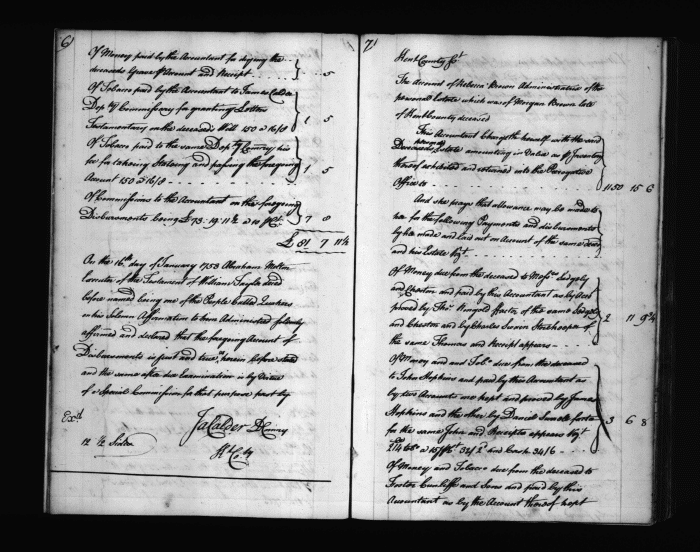 6
Of Money paid by the Accountant for signing the
deceaseds Grave & Account and Receipt . . . . 5
Of Tobacco paid by the Accountant to James Calder
Dep ty Commissary for granting Letters
Testamentary on the deceased's Will 150 @ 16/8 1 5
Of Tobacco paid to the same Dep ty Comiry his
fee for Stating and passing the foregoing
Account 150 @ 16/8 . . . . . . 1 5
Of Commissions to the Accountant on the foregoing
Disbursments being £ 73 . 19 . 11½ @ 10 p Ct. 7 8
£ 81 7 11½
On the 16th day of January 1758 Abraham
Executor of the Testament of William decd
before named being one of the People Called Quakers
on his Solemn Affirmation to him Administred solemnly
affirmed and declared that the foregoing Account of
Disbursments is just and true as herein before stated
and the same after due Examination is by Virtue
of a Special Commission for that purpose past by
Exd
Ja Calder D Comiry
12 ½ Sides
Kt Cty
7
Kent County Sct
The Account of Rebecca Brown Administratrix of the
personal Estate which was of Morgan Brown late
of Kent County deceased
This Accountant Chargeth herself with the said
Deceased's Estate amounting in Value as p Inventory
thereof exhibited and returned into the Prerogative
Office is . . . . . . 1150 15 6
And she prays that allowance may be made to
her for the following Payments and disbursments
by her made and laid out on Account of the same deced
and his Estate Vizt.
Of Money due from the deceased to Messrs Sedgely
and Cheston and paid by this Accountant as by Acct
proved by Thos Ringold factor of the same Sedgely
and Cheston and by Charles Storekeeper of
the same Thomas and Receipt appears . . . 2 11 9¼
Of Money and Tobo. due from the deceased
to John Hopkins and paid by this Accountant as
by two Accounts one kept and proved by James
Hopkins and the other by Daniel
for the same John and Receipts appears Vizt
@ 15/ and Cash 34/6 3 6 8
Of Money and Tobacco due from the deceased to
Foster Cunliffe and Sons and paid by this
Accountant as by the Account thereof kept